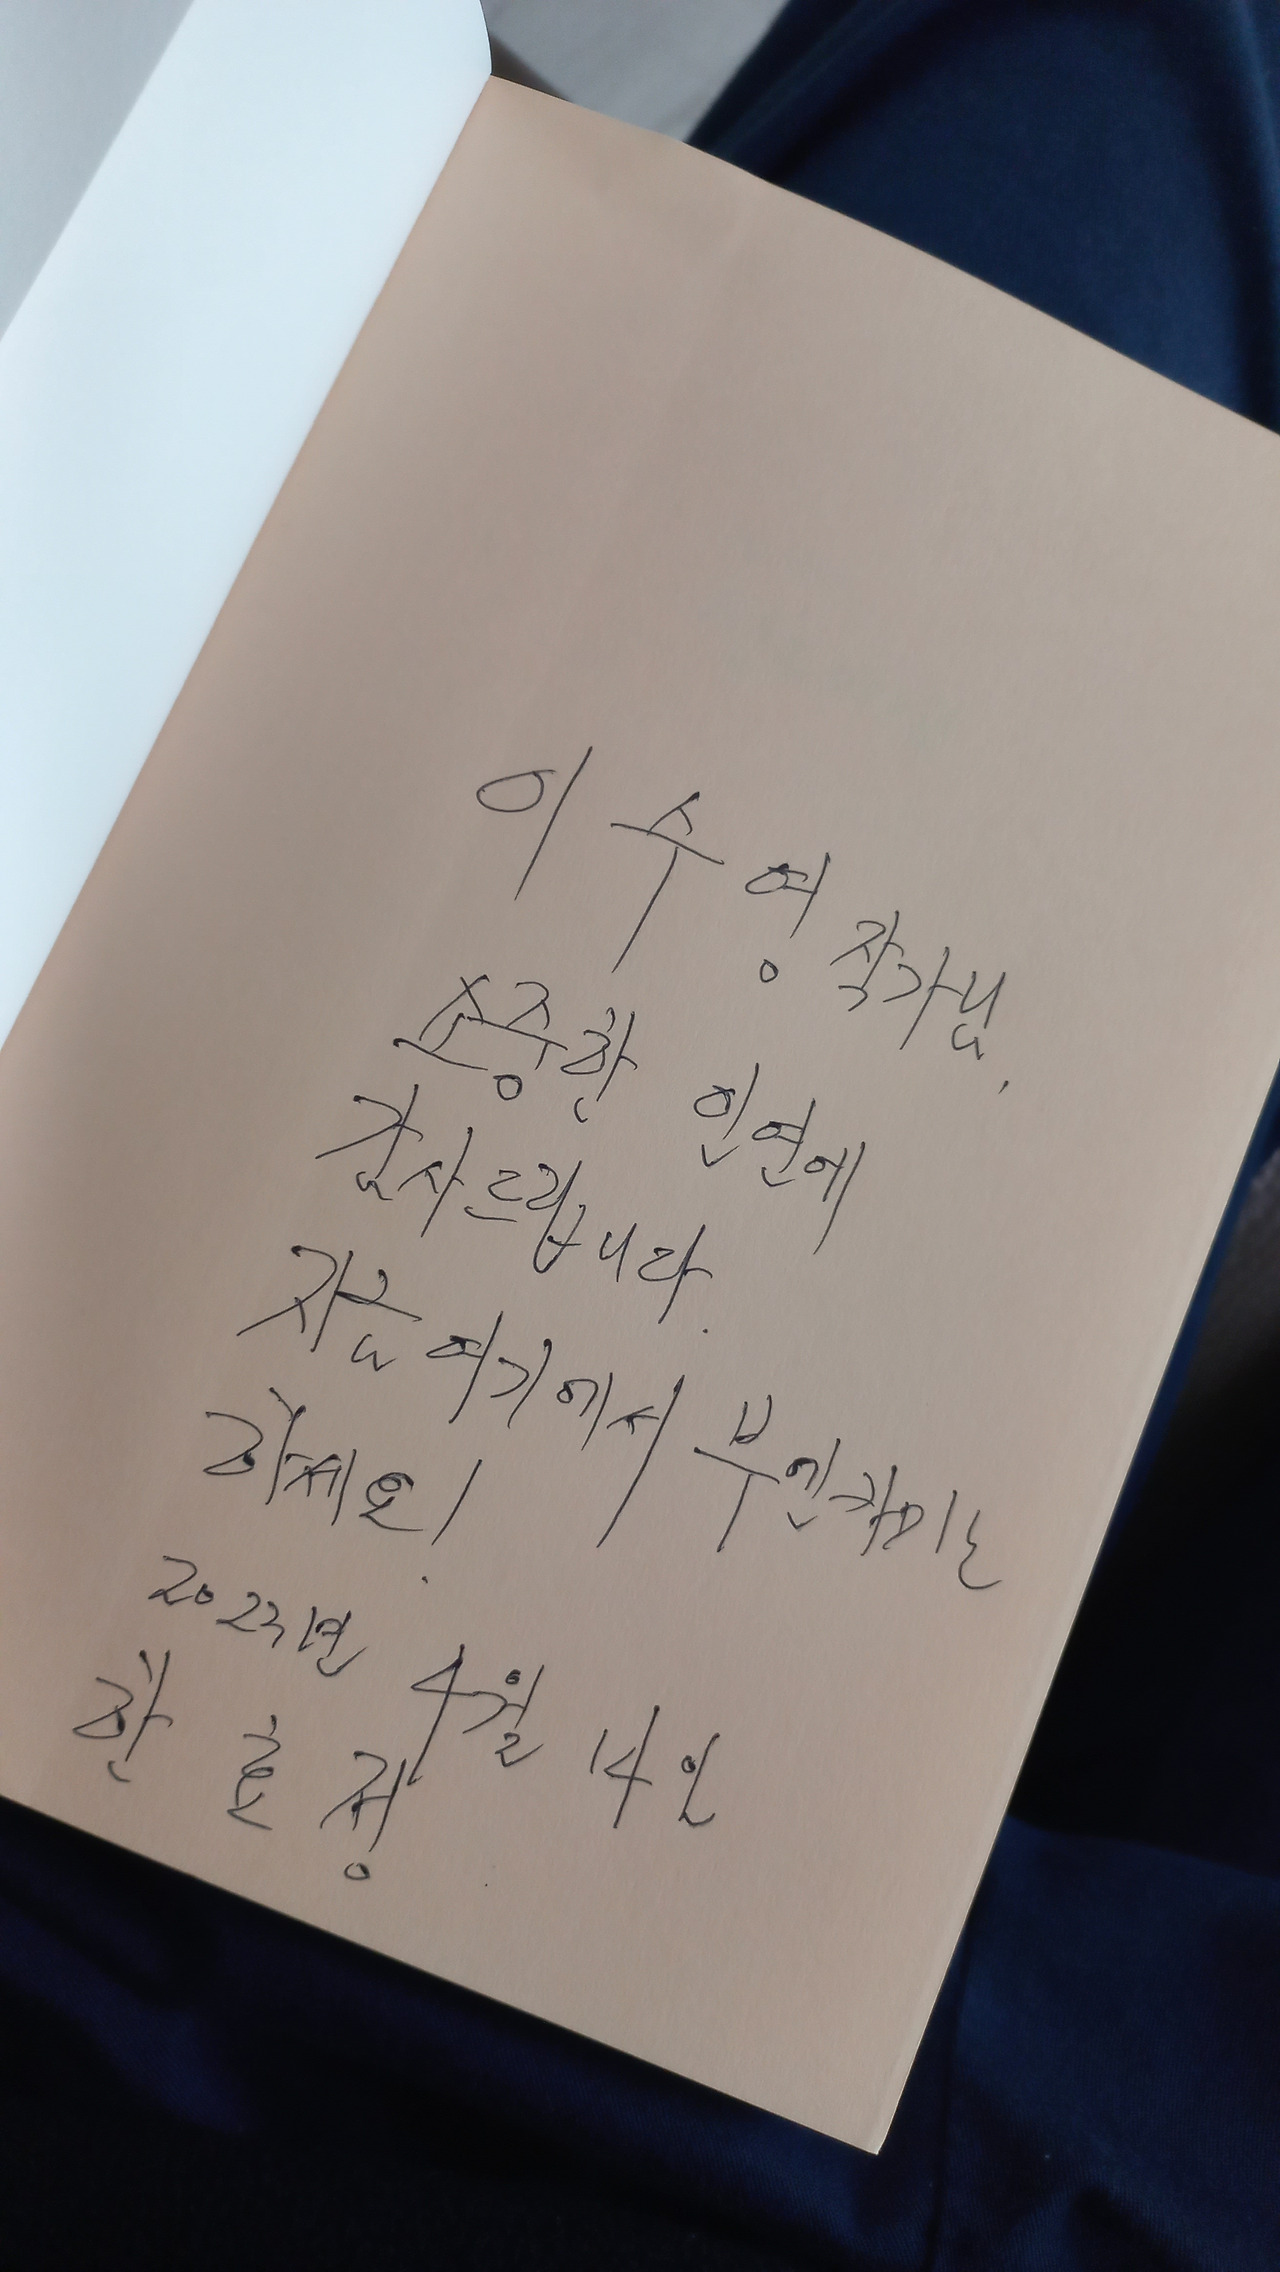 이수영 작가님,
소중한 인연에
감사드립니다.
지금 여기에서 부엔카미노
하세요!
2023년 4월 14일
한효정